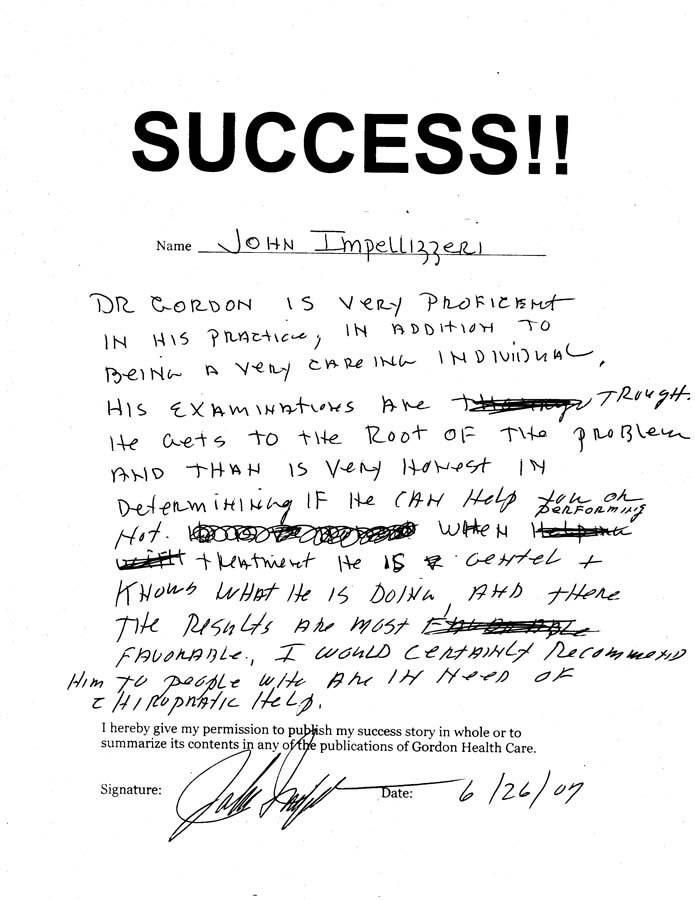 SUCCESS!!
Name John Impellizzeri
DR GORDON IS VERY PROFICENT
IN HIS PRACTICE, IN ADDITION TO
BEING A VERY CAREING INDIVIDUAL.
HIS EXAMINATIONS ARE TROUGH.
HE GETS TO THE ROOT OF THE PROBLEM
AND THAN IS VERY HONEST IN
DETERMINING IF HE CAN HELP YOU OR
NOT. WHEN PERFORMING
TREATMENT HE IS GENTEL +
KNOWS WHAT HE IS DOING, AND THERE
THE RESULTS ARE MOST
FAVORABLE., I WOULD CERTAINLY RECOMMEND
HIM TO PEOPLE WHO ARE IN NEED OF
CHIROPRATIC HELP.
I hereby give my permission to publish my success story in whole or to
summarize its contents in any of the publications of Gordon Health Care.
Signature: Date: 6/26/07